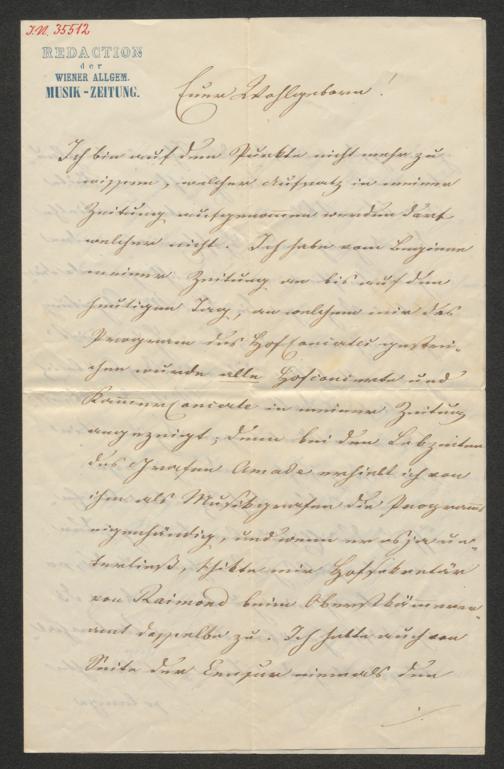 I.N. 35512
REDACTION
der
WIENER ALLGEM.
MUSIK-ZEITUNG.
Euer Wohlgeboren!
Ich bin auf dem Punkte nicht mehr zu
wissen, welcher Aufsatz in meiner
Zeitung aufgenommen werden darf
welcher nicht. Ich habe vom Beginne
meiner Zeitung an bis auf den
heutigen Tag, an welchem mir das
Programm des Hofconcertes gestri-
chen wurde alle Hofconcerte und
Kammerconcerte in meiner Zeitung
angezeigt, denn bei den Lebzeiten
des Grafen Amade erhielt ich von
ihm als Musikgrafen die Programme
eigenhändig, und wenn er es ja un-
terließ, schikte mir Hofsekretär
von Raimond beim Oberstkämmerer-
amt dasselbe zu. Ich hatte auch von
Seite der Censur niemals den